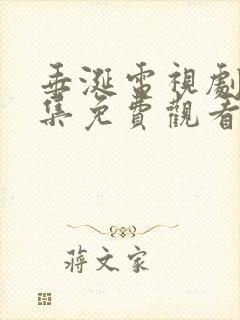 垂涎電視劇
集免費觀看
蔣文家